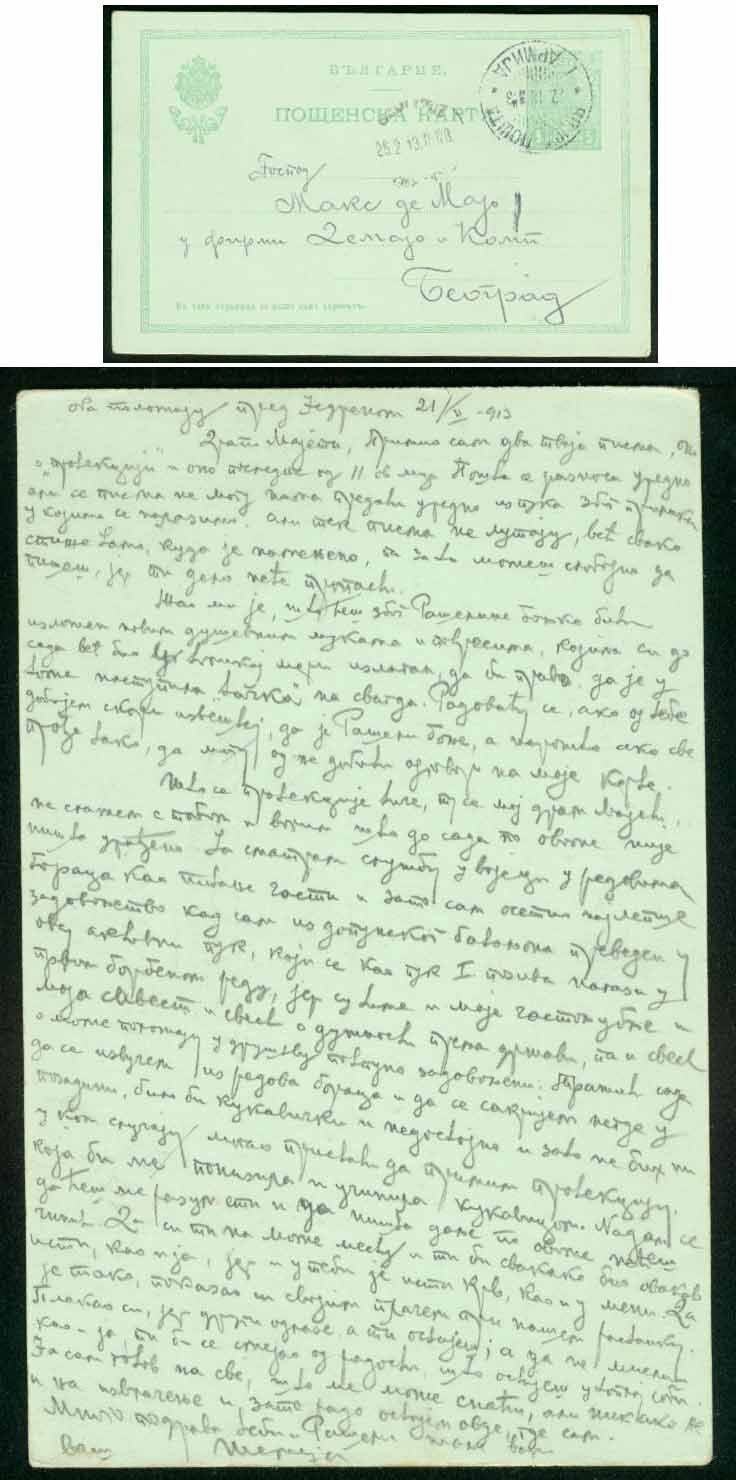 БЪЛГАРИЯ.
ПОЩЕНСКА КАРТА
ВОЈНА ПОШТА
I АРМИЈА
25.2.13.
Господ
Макс де Мајо
у фирми Демајо и Комп
Београд
На тази страница се пише само адресътъ.
пред Једреном 21/II -913
Драги Мајети, Примио сам два твоја писма,
о „протекцији" и оно последње од 11 ов м-ца Пошта се разноси уредно
али се писма не могу предати уредно због прилика
у којима се налазимо. али писма не лутају, већ свако
стигне тамо, куда је намењено, па зато можеш слободно да
пишеш, јер ти дело неће пропасти.
Жао ми је, што ћеш због Рашелине бити
изложен новим душевним мукама и потресима, којима си до
сада већ био у мери изложен, да би право да је у
томе наступила „тачка" на свагда. Радоваћу се, ако од тебе
добијем скори извештај, да је Рашели боље, а нарочито ако све
прође тако, да од не добити одговор на моје
Што се протекције тиче, ту се мој драги Мајети,
не слажем с тобом и волим што до сада по овоме није
ништа урађено. Ја сматрам службу у војсци у редовима
бораца као питање части и зато сам осетио најлепше
задовољство кад сам из допунског батаљона преведен у
овај активни пук, који се као пук I позива налази у
првом борбеном реду, јер су тиме и моје частољубље и
моја савест и свест о дужности према држави, па и свест
о моме положају у друштву потпуно задовољени. Тражити сада
да се извучем из редова бораца и да се сакријем негде у
позадини, било би кукавички и недостојно и зато не бих ни
у ком случају могао пристати да примим протекцију,
која би ме понизила и учинила кукавицом. Надам се
да ћеш ме разумети и да ништа даље по овоме нећеш
чинити. Да си ти на моме месту и ти би свакако био овакав
исти, као и ја, јер и у теби је исти крв, као и у мени. Да
је тако, показао си својим плачем при нашем растанку.
Плакао си, јер други одлазе, а ти остајеш; а да ни мислиш
као и ја, ти би се смејао од радости, што остајеш у
Ја сам готов на све, што ме може снаћи, али никако не
и на извлачење и зато радо остајем овде, где сам.
Много поздрава теби и Рашели
ваш